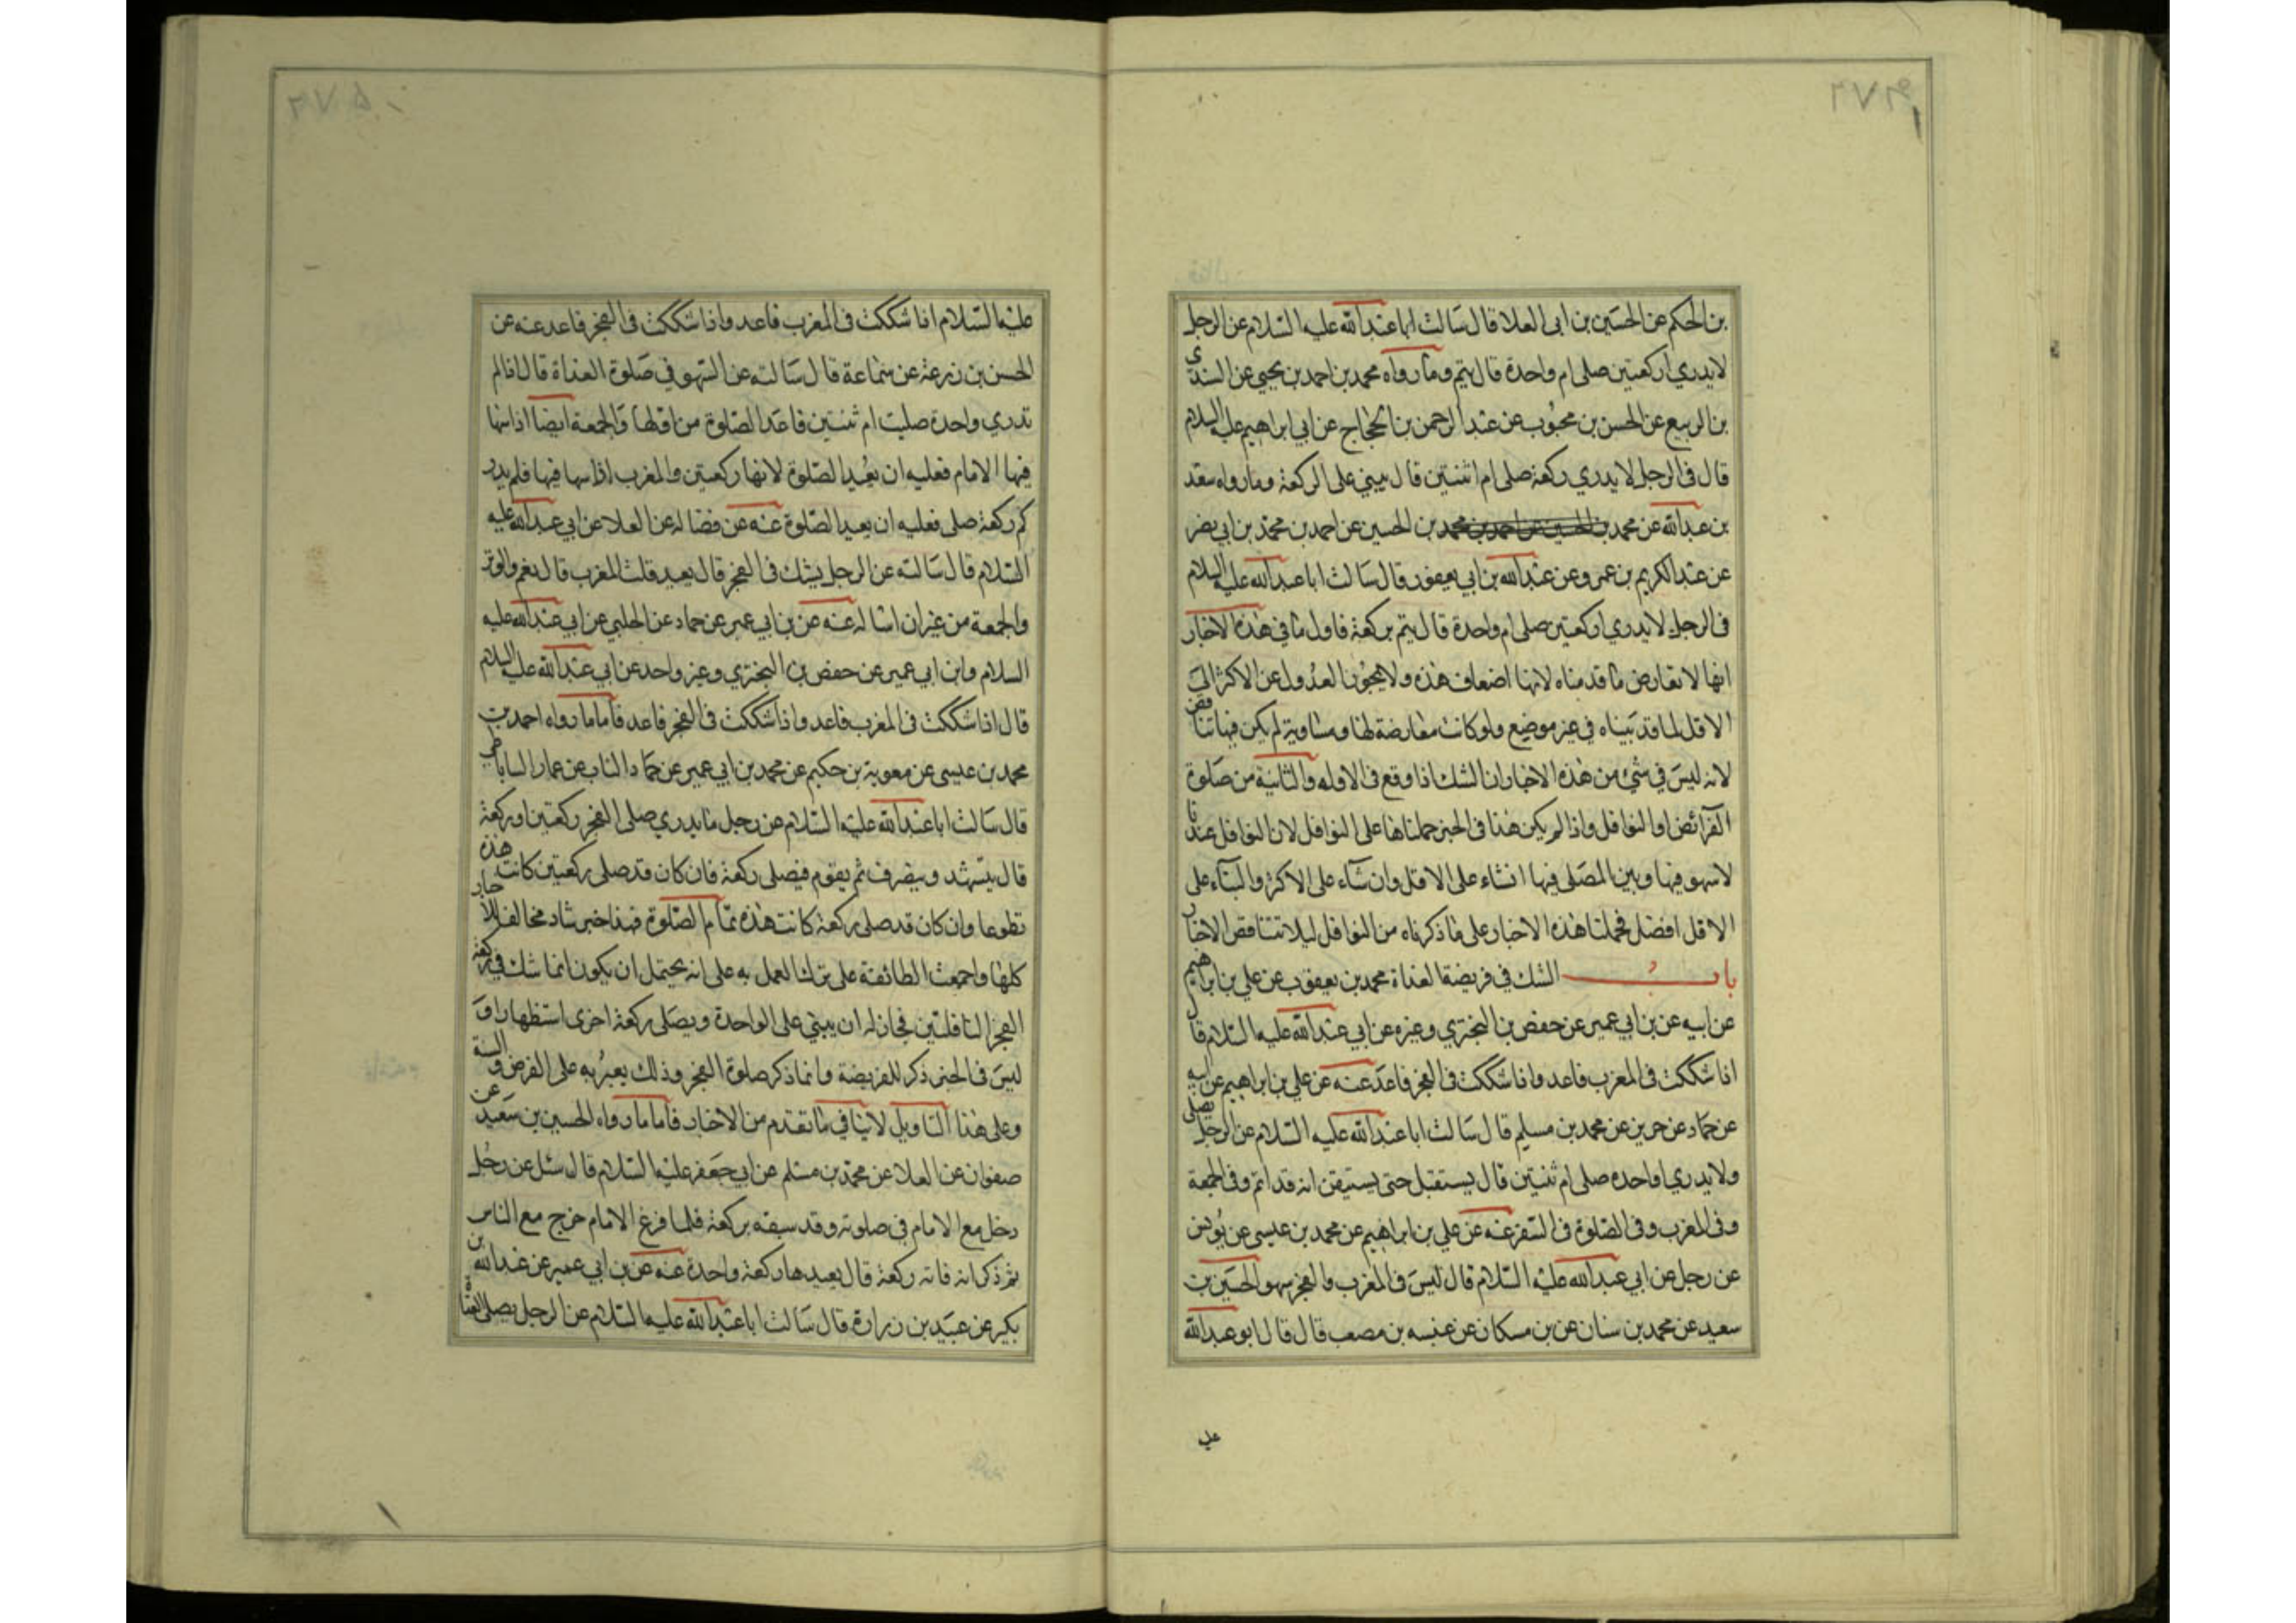 بن الحكم عن الحسين بن ابى العلا قال سالت ابا عبد الله عليه السلام عن الرجل
لا يدري اركعتين صلى ام واحدة قال يتم وما رواه محمد بن احمد بن يحيى عن السندي
بن الربيع عن الحسن بن محبوب عن عبد الرحمن بن الحجاج عن ابي ابراهيم عليه السلام
قال فى الرجل لا يدري ركعة صلى ام اثنتين قال يبني على الركعة وما رواه سعد
بن عبد الله عن محمد بن الحسين عن احمد بن محمد بن الحسين عن احمد بن محمد بن ابي نضر
عن عبد الكريم بن عمرو عن عبد الله بن ابي يعفور قال سالت ابا عبد الله عليه السلام
فى الرجل لا يدري اركعتين صلى ام واحدة قال يتم بركعة فاول ما في هذه الاخبار
انها لا تعارض ما قدمناه لانها اضعاف هذه ولا يجوز العدول عن الاكثر الى
الاقل لما قد بيناه في غير موضع ولو كانت معارضة لها ومساوية لم يكن فيها تناقض
لانه ليس في شئ من هذه الاخبار ان الشك اذا وقع فى الاوله والثانية من صلوة
الفرائض او النوافل واذا لم يكن هذا فى الخبر حملناها على النوافل لان النوافل عندنا
لا سهو فيها ويبن المصلى فيها انشاء على الاقل وان شاء على الاكثر والبناء على
الاقل افضل فحملنا هذه الاخبار على ما ذكرناه من النوافل ليلا تتناقض الاخبار
باب الشك في فريضة الغداة محمد بن يعقوب عن علي بن ابراهيم
عن ابيه عن بن ابي عمير عن حفص بن البختري وغيره عن ابي عبد الله عليه السلام قال
اذا شككت فى المغرب فاعد واذا شككت فى الفجر فاعد عنه عن علي بن ابراهيم عن ابيه
عن حماد عن حريز عن محمد بن مسلم قال سالت ابا عبد الله عليه السلام عن الرجل يصلى
ولا يدري اواحده صلى ام ثنتين قال يستقبل حتى يستيقن انه قد اتم وفى الجمعة
وفى المغرب وفى الصلوة فى السفر عنه عن علي بن ابراهيم عن محمد بن عيسى عن يونس
عن رجل عن ابي عبد الله عليه السلام قال ليس فى المغرب والفجر سهو الحسين بن
سعيد عن محمد بن سنان عن بن مسكان عن عنبسه بن مصعب قال قال ابو عبد الله
علي
عليه السلام اذا شككت فى المغرب فاعد واذا شككت فى الفجر فاعد عنه عن
الحسن بن زرعة عن سماعة قال سالته عن السهو في صلوة الغداة قال اذا لم
تدري واحدة صليت ام ثنتين فاعد الصلوة من اولها والجمعة ايضا اذا سها
فيها الامام فعليه ان يعيد الصلوة لانها ركعتين والمغرب اذا سها فيها فلم يدر
كم ركعة صلى فعليه ان يعيد الصلوة عنه عن فضاله عن العلا عن ابي عبد الله عليه
السلام قال سالته عن الرجل يشك فى الفجر قال يعيد قلت المغرب قال نعم والوتر
والجمعة من غير ان اساله عنه عن بن ابي عمير عن حماد عن الحلبي عن ابي عبد الله عليه
السلام وابن ابي عمير عن حفص بن البختري وغير واحد عن ابي عبد الله عليه السلام
قال اذا شككت فى المغرب فاعد واذا شككت فى الفجر فاعد فاما ما رواه احمد بن
محمد بن عيسى عن معوية بن حكيم عن محمد بن ابي عمير عن حماد الناب عن عمار الساباطي
قال سالت ابا عبد الله عليه السلام عن رجل ما يدري صلى الفجر ركعتين او ركعة
قال يتشهد وينصرف ثم يقوم فيصلى ركعة فان كان قد صلى ركعتين كانت هذه
تطوعا وان كان قد صلى ركعة كانت هذه تمام الصلوة فهذا خبر شاذ مخالف للاخبار
كلها واجمعت الطائفة على ترك العمل به على انه يحتمل ان يكون انما شك في ركعة
الفجر النافلتين فجاز له ان يبني على الواحدة ويصلى ركعة اخرى استظهارا و
ليس فى الخبر ذكر للفريضة وانما ذكر صلوة الفجر وذلك يعبر به على الفرض والسنة
وعلى هذا التاويل لا ينافي ما تقدم من الاخبار فاما ما رواه الحسين بن سعيد عن
صفوان عن العلا عن محمد بن مسلم عن ابي جعفر عليه السلام قال سئل عن رجل
دخل مع الامام في صلوته وقد سبقه بركعة فلما فرغ الامام خرج مع الناس
ثم ذكر انه فاته ركعة قال يعيدها ركعة واحدة عنه عن بن ابي عمير عن عبد الله بن
بكير عن عبيد بن زرارة قال سالت ابا عبد الله عليه السلام عن الرجل يصلى الغداة